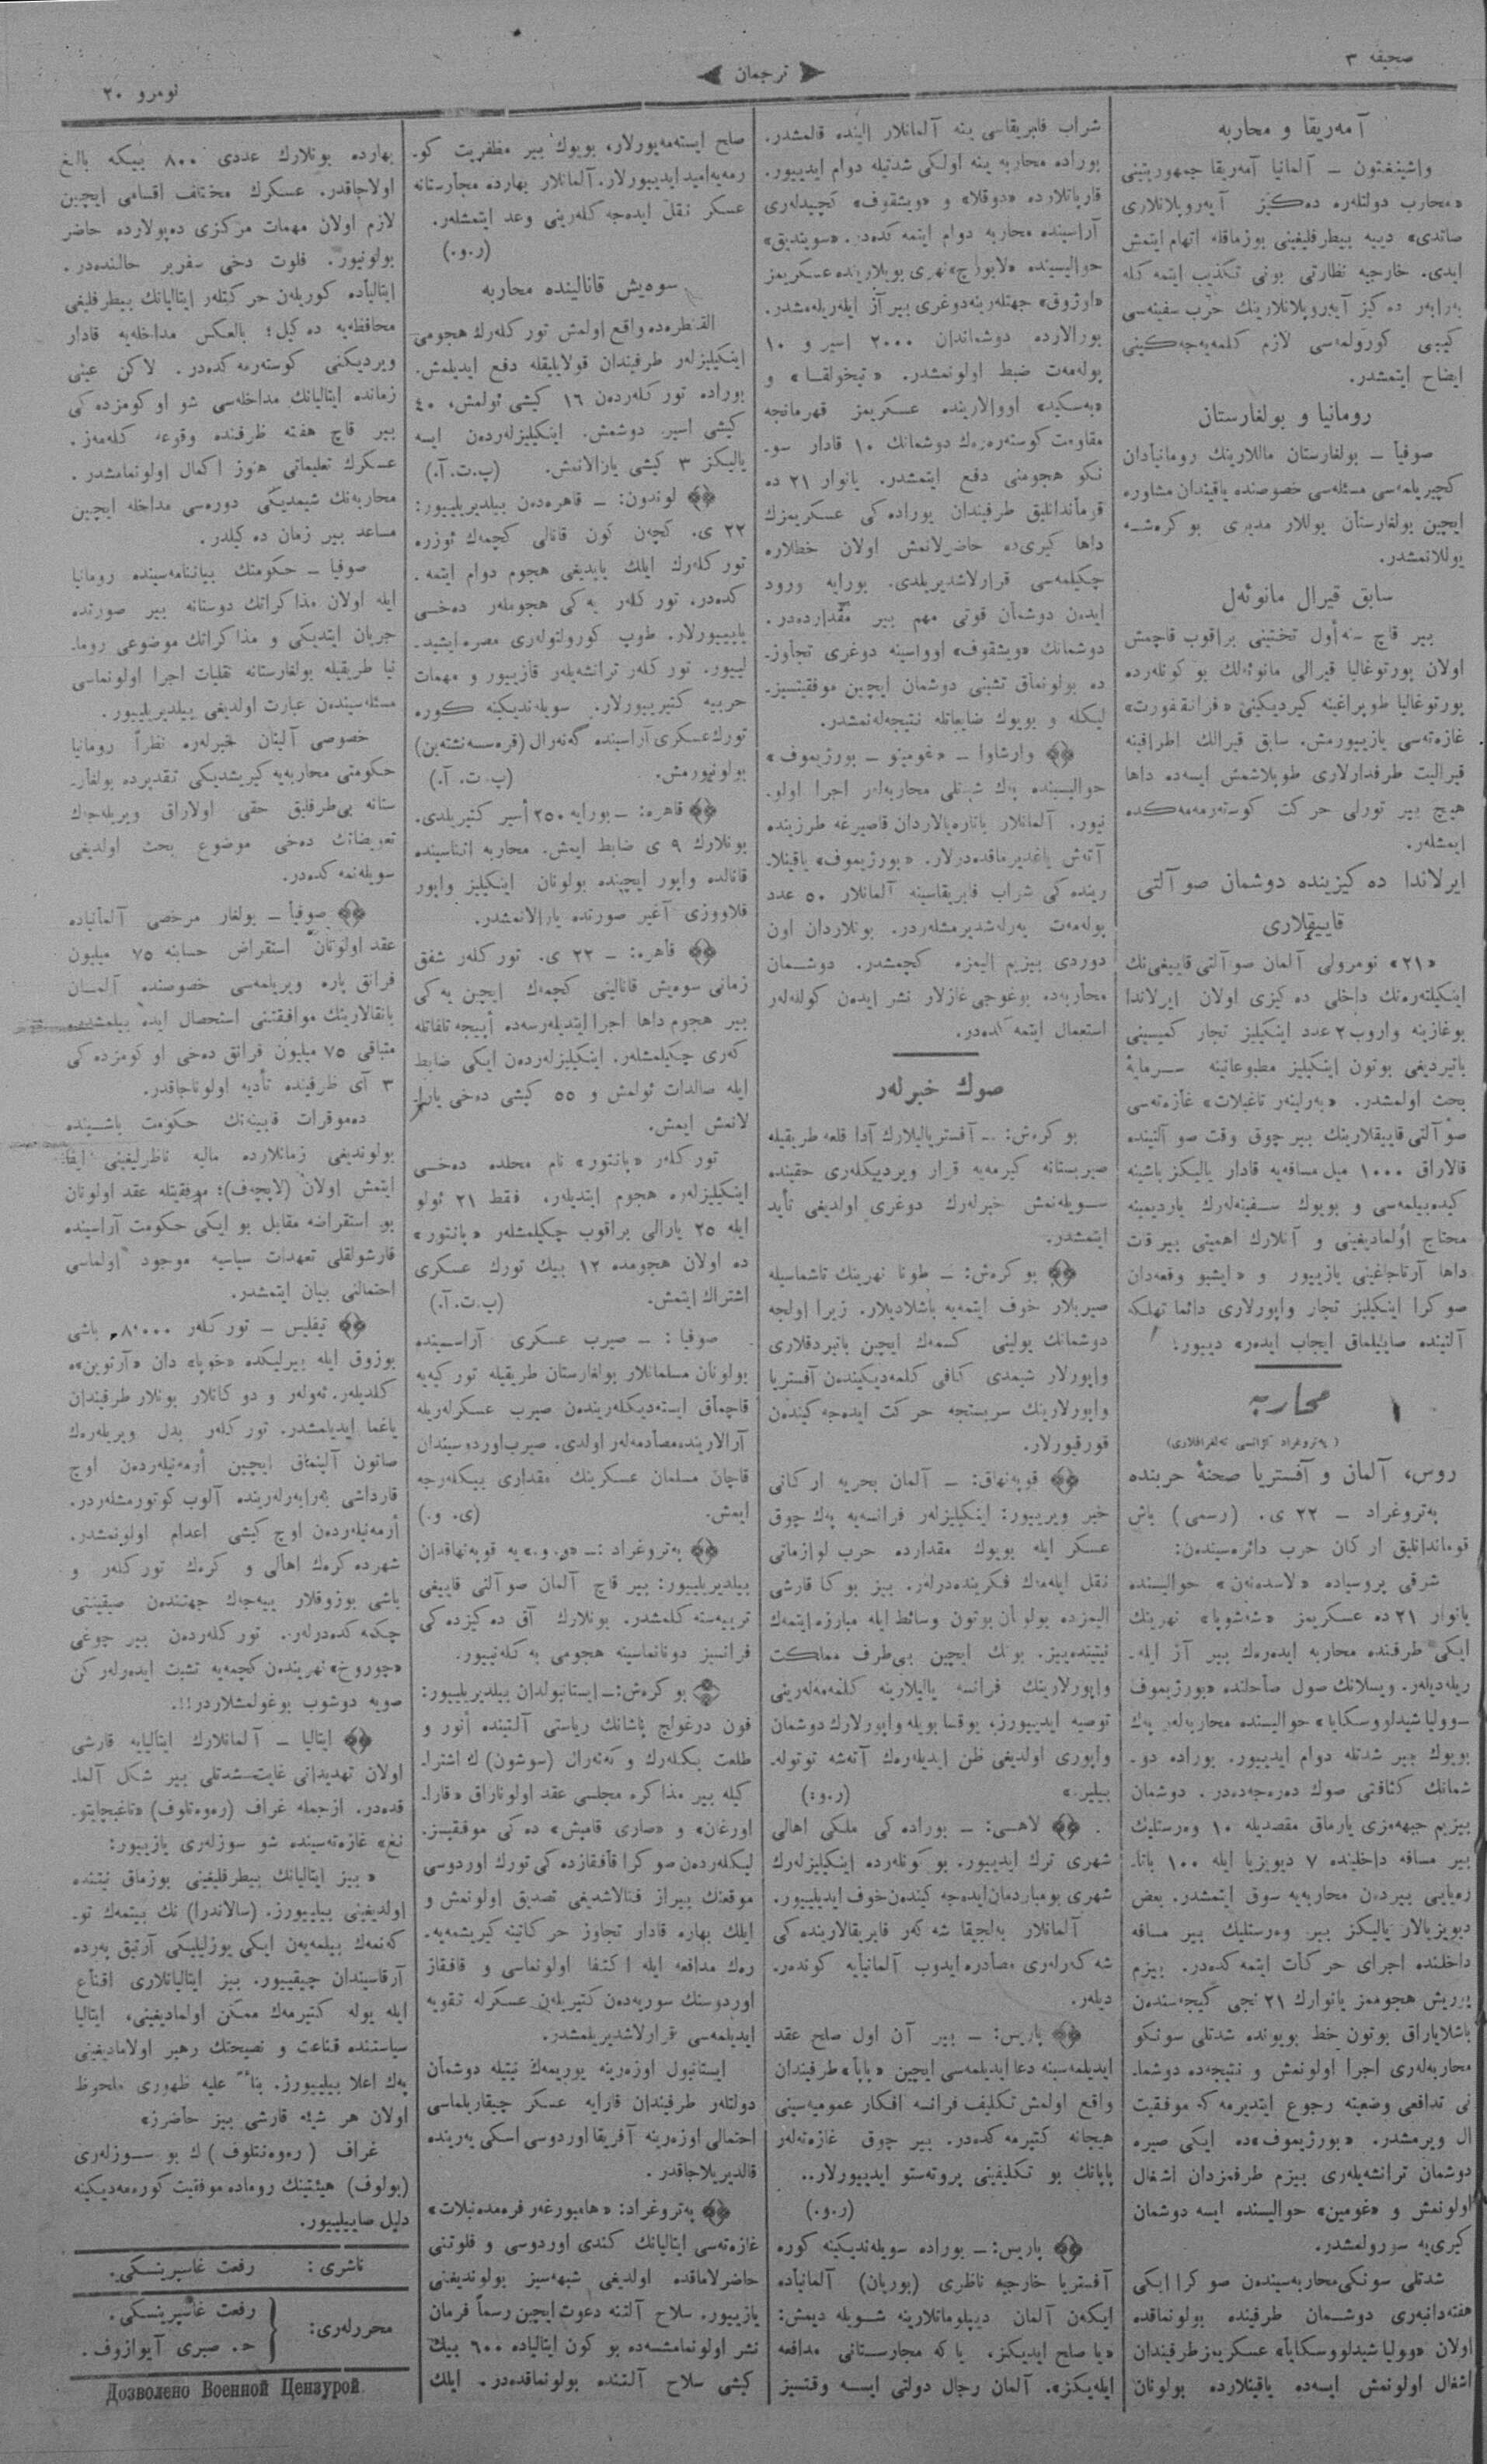 صحیفه ۳
ترجمان
نومرو ۲۰
آمەریقا و محاربه
واشینغتون ــ آلمانیا آمەریقا جمهوریتینی
«محارب دولتلەره دەڭیز آیەروپلانلاری
صاتدی» دییه بیطرفلیغینی بوزماقله اتهام ایتمش
ایدی. خارجیه نظارتی بونی تکذیب ایتمه کله
بەرابەر دەڭیز آیەروپلانلارینك حرب سفینەسی
کیبی کورولمەسی لازم کلمەیەجەکینی
ایضاح ایتمشدر.
رومانیا و بولغارستان
صوفیا ــ بولغارستان ماللارینك رومانیادان
کچیریلمەسی مسئلەسی خصوصنده یاقیندان مشاوره
ایچین بولغارستان یوللار مدیری بوکرەشه
یوللانمشدر.
سابق قیرال مانوئەل
بیر قاچ سنه أول تختینی براقوب قاچمش
اولان پورتوغالیا قیرالی مانوئەلك بو کونلەرده
پورتوغالیا طوپراغینه کیردیکینی «فرانقفورت»
غازەتەسی یازییورمش. سابق قیرالك اطرافینه
قیرالیت طرفدارلاری طوپلاشمش ایسەده داها
هیچ بیر تورلی حرکت کوستەرمەمەکده
ایمشلەر.
ایرلاندا دەکیزینده دوشمان صو آلتی
قاییقلاری
«۲۱» نومرولی آلمان صو آلتی قاییغینك
اینکیلتەرەنك داخلی دەکیزی اولان ایرلاندا
بوغازینه واروب ۲ عدد اینکیلیز تجار کمیسینی
باتیردیغی بوتون اینکیلیز مطبوعاتینه سرمایۀ
بحث اولمشدر. «بەرلینەر تاغبلات» غازەتەسی
صو آلتی قاییقلارینك بیر چوق وقت صو آلتینده
قالاراق ۱۰۰۰ میل مسافەیه قادار یالیکز باشینه
کیدەبیلمەسی و بویوك سفینەلەرك یاردیمینه
محتاج أولمادیغینی و آنلارك اهمیتی بیر قات
داها آرتاجاغینی یازییور و «ایشبو وقعەدان
صوکرا اینکیلیز تجار واپورلاری دائما تهلکه
آلتینده صاییلماق ایجاب ایدەر» دییور.
محاربه
(پەتروغراد آژانسی تەلغرافلاری)
روس، آلمان و آفستریا صحنۀ حربنده
پەتروغراد ــ ۲۲ ی. (رسمی) باش
قوماندانلیق ارکان حرب دائرەسیندەن:
شرقی پروسیاده «لاسدەنەن» حوالیسنده
یانوار ۲۱ ده عسکریمز «شەشوپا» نهرینك
ایکی طرفنده محاربه ایدەرەك بیر آز ایلە-
ریلەدیلەر. ویسلانك صول صاحلنده «بورژیموف
ــ وولیا شیدلووسکایا» حوالیسنده محاربەلەر پەك
بویوك بیر شدتله دوام ایدییور. بوراده دو-
شمانك کثافتی صوك دەرەجەدەدر. دوشمان
بیزیم جبهەمزی یارماق مقصدیله ۱۰ وەرستلیك
بیر مسافه داخلینده ۷ دیویزیا ایله ۱۰۰ باتا-
رەیایی بیردن محاربەیه سوق ایتمشدر. بعض
دیویزیالار یالیکز بیر وەرستلیك بیر مسافه
داخلنده اجرای حرکات ایتمەکدەدر. بیزم
یورییش هجوممز یانوارك ۲۱ نجی کیجەسندەن
باشلایاراق بوتون خط بویونده شدتلی سونکو
محاربەلەری اجرا اولونمش و نتیجەده دوشما-
نی تدافعی وضعیته رجوع ایتدیرمەکه موفقیت
ال ویرمشدر. «بورژیموف»ده ایکی صیره
دوشمان ترانشەیلەری بیزم طرفمزدان اشغال
اولونمش و «غومین» حوالیسنده ایسه دوشمان
کیری‌یه سورولمشدر.
شدتلی سونکی محاربەسیندەن صوکرا ایکی
هفتەدانبەری دوشمان طرفینده بولونماقده
اولان «وولیا شیدلووسکایا» عسکریمز طرفیندان
اشغال اولونمش ایسەده یاقینلارده بولونان
شراب فابریقاسی ینه آلمانلار الینده قالمشدر.
بوراده محاربه ینه اولکی شدتیله دوام ایدییور.
قارپاتلارده «دوقلا» و «ویشقوف» کچیدلەری
آراسینده محاربه دوام ایتمەکدەدر. «سویتدیق»
حوالیسینده «لابورچ» نهری بویلارینده عسکریمز
«اوژوق» جهتلەرینه دوغری بیر آز ایلەریلەمشدر.
بورالارده دوشماندان ۲۰۰۰ اسیر و ۱۰
پولەمەت ضبط اولونمشدر. «تیخولقا» و
«بەسکید» اووالارینده عسکریمز قهرمانجه
مقاومت کوستەرەرەك دوشمانك ۱۰ قادار سو-
نکو هجومنی دفع ایتمشدر. یانوار ۲۱ ده
قوماندانلیق طرفیندان بورادەکی عسکریمزك
داها کیری‌ده حاضرلانمش اولان خطلاره
چکیلمەسی قرارلاشدیریلدی. بورایه ورود
ایدەن دوشمان قوتی مهم بیر مقداردەدر.
دوشمانك «ویشقوف» اوواسینه دوغری تجاوز-
ده بولونماق تشبثی دوشمان ایچین موفقیتسیز-
لیکله و بویوك ضایعاتله نتیجەلەنمشدر.
وارشاوا ــ «غومینو ــ بورژیموف»
حوالیسینده پەك شدتلی محاربەلەر اجرا اولو-
نیور. آلمانلار باتارەیالاردان قاصیرغه طرزینده
آتەش یاغدیرماقدەدرلار. «بورژیموف» یاقینلا-
ریندەکی شراب فابریقاسینه آلمانلار ۵۰ عدد
پولەمەت یەرلەشدیرمشلەردر. بونلاردان اون
دوردی بیزیم المزه کچمشدر. دوشمان
محاربەده بوغوجی غازلار نشر ایدەن کوللەلەر
استعمال ایتمەکدەدر.
صوك خبرلەر
بوکرەش: ــ آفستریالیلارك آدا قلعه طریقیله
صیربستانه کیرمەیه قرار ویردیکلەری حقینده
سویلەنمش خبرلەرك دوغری اولدیغی تأید
ایتمشدر.
بوکرەش: ــ طونا نهرینك تاشماسیله
صیربلار خوف ایتمەیه باشلادیلار. زیرا اولجه
دوشمانك یولینی کسمەك ایچین باتیردقلاری
واپورلار شیمدی کافی کلمەدیکیندەن آفستریا
واپورلارینك سربستجه حرکت ایدەجەکیندەن
قورقیورلار.
قوپەنهاق: ــ آلمان بحریه ارکانی
خبر ویرییور: اینکیلیزلەر فرانسەیه پەك چوق
عسکر ایله بویوك مقدارده حرب لوازماتی
نقل ایلەمەك فکریندەدرلەر. بیز بوکا قارشی
الیمزده بولونان بوتون وسائط ایله مبارزه ایتمەك
نیتیندەییز. بونك ایچین بی‌طرف مملکت
واپورلارینك فرانسه یالیلارینه کلمەمەلەرینی
توصیه ایدییورز، یوقسا بویله واپورلارك دوشمان
واپوری اولدیغی ظن ایدیلەرەك آتەشه توتولە-
بیلیر.» (ر.و.)
لاهەی: ــ بورادەکی ملکی اهالی
شهری ترك ایدییور. بو کونلەرده اینکیلیزلەرك
شهری بومباردمان ایدەجەکیندەن خوف ایدیلییور.
آلمانلار بەلچیقا شەکەر فابریقالاریندەکی
شەکەرلەری مصادره ایدوب آلمانیایه کوندەر-
دیلەر.
پاریس: ــ بیر آن اول صلح عقد
ایدیلمەسینه دعا ایدیلمەسی ایچین «پاپا» طرفیندان
واقع اولمش تکلیف فرانسه افکار عمومیەسینی
هیجانه کتیرمەکدەدر. بیر چوق غازەتەلەر
پاپانك بو تکلیفینی پروتەستو ایدییورلار..
(ر.و.)
پاریس: ــ بوراده سویلەندیکینه کوره
آفستریا خارجیه ناظری (بوریان) آلمانیاده
ایکەن آلمان دیپلوماتلارینه شویله دیمش:
«یا صلح ایدیکز، یاکه مجارستانی مدافعه
ایلەیکز». آلمان رجال دولتی ایسه وقتسیز
صلح ایستەمەیورلار، بویوك بیر مظفریت کو-
رمەیه امید ایدییورلار. آلمانلار بهارده مجارستانه
عسکر نقل ایدەجەکلەرینی وعد ایتمشلەر.
(ر.و.)
سوەیش قانالینده محاربه
القنطرەده واقع اولمش تورکلەرك هجومی
اینکیلیزلەر طرفیندان قولایلیقله دفع ایدیلمش.
بوراده تورکلەردەن ۱۶ کیشی ئولمش، ۴۰
کیشی اسیر دوشمش. اینکیلیزلەردەن ایسه
یالیکز ۳ کیشی یارالانمش. (پ.ت.آ.)
لوندون: ــ قاهرەدەن بیلدیریلییور:
۲۲ ی. کچەن کون قانالی کچمەك ئوزره
تورکلەرك ایلك یاپدیغی هجوم دوام ایتمە-
کدەدر. تورکلەر یەکی هجوملەر دەخی
یاپییورلار. طوپ کورولتولەری مصره ایشید-
لییور. تورکلەر ترانشەیلەر قازییور و مهمات
حربیه کتیرییورلار. سویلەندیکینه کوره
تورك عسکری آراسینده گەنەرال (قرەسسەنشتەین)
بولونیورمش. (پ.ت.آ.)
قاهره: ــ بورایه ۲۵۰ أسیر کتیریلدی.
بونلارك ۹ ی ضابط ایمش. محاربه اثناسینده
قانالده واپور ایچینده بولونان اینکیلیز واپور
قلاووزی آغیر صورتده یارالانمشدر.
قاهره: ــ ۲۲ ی. تورکلەر شفق
زمانی سوەیش قانالینی کچمەك ایچین یەکی
بیر هجوم داها اجرا ایتدیلەرسەده أییجه تلفاتله
کەری چکیلمشلەر. اینکیلیزلەردەن ایکی ضابط
ایله صالدات ئولمش و ۵۵ کیشی دەخی یارا-
لانمش ایمش.
تورکلەر «یانتور» نام محلده دەخی
اینکیلیزلەره هجوم ایتدیلەر، فقط ۲۱ ئولو
ایله ۲۵ یارالی براقوب چکیلمشلەر «یانتور»
ده اولان هجومده ۱۲ بیك تورك عسکری
اشتراك ایتمش. (پ.ت.آ.)
صوفیا: ــ صیرب عسکری آراسینده
بولونان مسلمانلار بولغارستان طریقیله تورکیەیه
قاچماق ایستەدیکلەریندەن صیرب عسکرلەریله
آرالارینده مصادمەلەر اولدی. صیرب اوردوسیندان
قاچان مسلمان عسکرینك مقداری بیکلەرجه
ایمش. (ی.و.)
پەتروغراد: ــ «و.و.»یه قوپەنهاقدان
بیلدیریلییور: بیر قاچ آلمان صو آلتی قاییغی
ترییەستە کلمشدر. بونلارك آق دەکیزدەکی
فرانسز دونانماسینه هجومی بەکلەنییور.
بوکرەش: ــ ایستانبولدان بیلدیریلییور:
فون درغولچ پاشانك ریاستی آلتینده أنور و
طلعت بکلەرك و گەنەرال (سوشون) ك اشترا-
کیله بیر مذاکره مجلسی عقد اولوناراق «قارا-
اورغان» و «صاری قامیش» دەکی موفقیتسز-
لیکلەردەن صوکرا قافقازدەکی تورك اوردوسی
موقعنك بیراز فنالاشدیغی تصدیق اولونمش و
ایلك بهاره قادار تجاوز حرکاتینه کیریشمەیە-
رەك مدافعه ایله اکتفا اولونماسی و قافقاز
اوردوسنك سوریەدەن کتیریلەن عسکرله تقویه
ایدیلمەسی قرارلاشدیریلمشدر.
ایستانبول اوزەرینه یوریمەك نیتیله دوشمان
دولتلەر طرفیندان قارایه عسکر چیقاریلماسی
احتمالی اوزەرینه آفریقا اوردوسی اسکی یەرینده
قالدیریلاجاقدر.
پەتروغراد: «هامبورغەر فرەمدەنبلات»
غازەتەسی ایتالیانك کندی اوردوسی و فلوتنی
حاضرلاماقده اولدیغی شبهەسیز بولوندیغینی
یازییور. سلاح آلتنه دعوت ایچین رسماً فرمان
نشر اولونمامشسەده بو کون ایتالیاده ۶۰۰ بیك
کیشی سلاح آلتنده بولونماقدەدر. ایلك
بهارده بونلارك عددی ۸۰۰ بیکه بالغ
اولاجاقدر. عسکرك مختلف اقسامی ایچین
لازم اولان مهمات مرکزی دەپولارده حاضر
بولونیور. فلوت دخی سفربر حالندەدر.
ایتالیاده کوریلەن حرکتلەر ایتالیانك بیطرفلیغی
محافظەیه دەکیل؛ بالعکس مداخلەیه قادار
ویردیکنی کوستەرمەکدەدر. لاکن عینی
زمانده ایتالیانك مداخلەسی شو اوکومزدەکی
بیر قاچ هفته ظرفنده وقوعه کلەمەز.
عسکرك تعلیماتی هنوز اکمال اولونمامشدر.
محاربەنك شیمدیکی دورەسی مداخله ایچین
مساعد بیر زمان دەکیلدر.
صوفیا ــ حکومتك بیاننامەسینده رومانیا
ایله اولان مذاکراتك دوستانه بیر صورتده
جریان ایتدیکی و مذاکراتك موضوعی روما-
نیا طریقیله بولغارستانه نقلیات اجرا اولونماسی
مسئلەسیندەن عبارت اولدیغی بیلدیریلییور.
خصوصی آلینان خبرلەره نظراً رومانیا
حکومتی محاربەیه کیریشدیکی تقدیرده بولغار-
ستانه بی‌طرفلیق حقی اولاراق ویریلەجەك
تعویضاتك دەخی موضوع بحث اولدیغی
سویلەنمەکدەدر.
صوفیا ــ بولغار مرخصی آلمانیاده
عقد اولونان استقراض حسابنه ۷۵ میلیون
فرانق پاره ویریلمەسی خصوصنده آلمان
بانقالارینك موافقتنی استحصال ایدە بیلمشدر.
متباقی ۷۵ میلیون فرانق دەخی اوکومزدەکی
۳ آی ظرفینده تأدیه اولوناجاقدر.
دەموقرات قابینەنك حکومت باشینده
بولوندیغی زمانلارده مالیه ناظرلیغینی ایفا
ایتمش اولان (لاپچەف)؛ موفقیتله عقد اولونان
بو استقراضه مقابل بو ایکی حکومت آراسینده
قارشولقلی تعهدات سیاسیه موجود اولماسی
احتمالنی بیان ایتمشدر.
تیفلیس ــ تورکلەر ۸۰۰۰۰ باشی
بوزوق ایله بیرلیکده «خوپا» دان «آرتوین»ه
کلدیلەر. ئەولەر و دوکانلار بونلار طرفیندان
یاغما ایدیلمشدر. تورکلەر بدل ویریلەرەك
صاتون آلینماق ایچین أرمەنیلەردەن اوچ
قارداشی بەرابەرلەرینده آلوب کوتورمشلەردر.
أرمەنیلەردەن اوچ کیشی اعدام اولونمشدر.
شهرده کرەك اهالی و کرەك تورکلەر و
باشی بوزوقلار ییەجەك جهتندەن صیقینتی
چکمەکدەدرلەر. تورکلەردەن بیر چوغی
«چوروخ» نهریندەن کچمەیه تشبث ایدەرلەرکن
صویه دوشوب بوغولمشلاردر!!.
ایتالیا ــ آلمانلارك ایتالیایه قارشی
اولان تهدیداتی غایت شدتلی بیر شکل آلما-
قدەدر. ازجمله غراف (رەوەنتلوف) «تاغیچایتو-
نغ» غازەتەسینده شو سوزلەری یازییور:
«بیز ایتالیانك بیطرفلیغینی بوزماق نیتنده
اولدیغینی بیلییورز. (سالاندرا) نك بیتمەك تو-
کەنمەك بیلمەیەن ایکی یوزلیلیکی آرتیق پەرده
آرقاسیندان چیقییور. بیز ایتالیانلاری اقناع
ایله یوله کتیرمەك ممکن اولمادیغینی، ایتالیا
سیاستنده قناعت و نصیحتك رهبر اولامادیغینی
پەك اعلا بیلییورز. بناءً علیه ظهوری ملحوظ
اولان هر شیئه قارشی بیز حاضرز»
غراف (رەوەنتلوف) ك بو سوزلەری
(بولوف) هیئتینك روماده موفقیت کورەمەدیکینه
دلیل صاییلییور.
ناشری: رفعت غاسپرینسکی.
محررلەری: رفعت غاسپرینسکی.
ح. صبری آیوازوف.
Дозволено Военной Цензурой